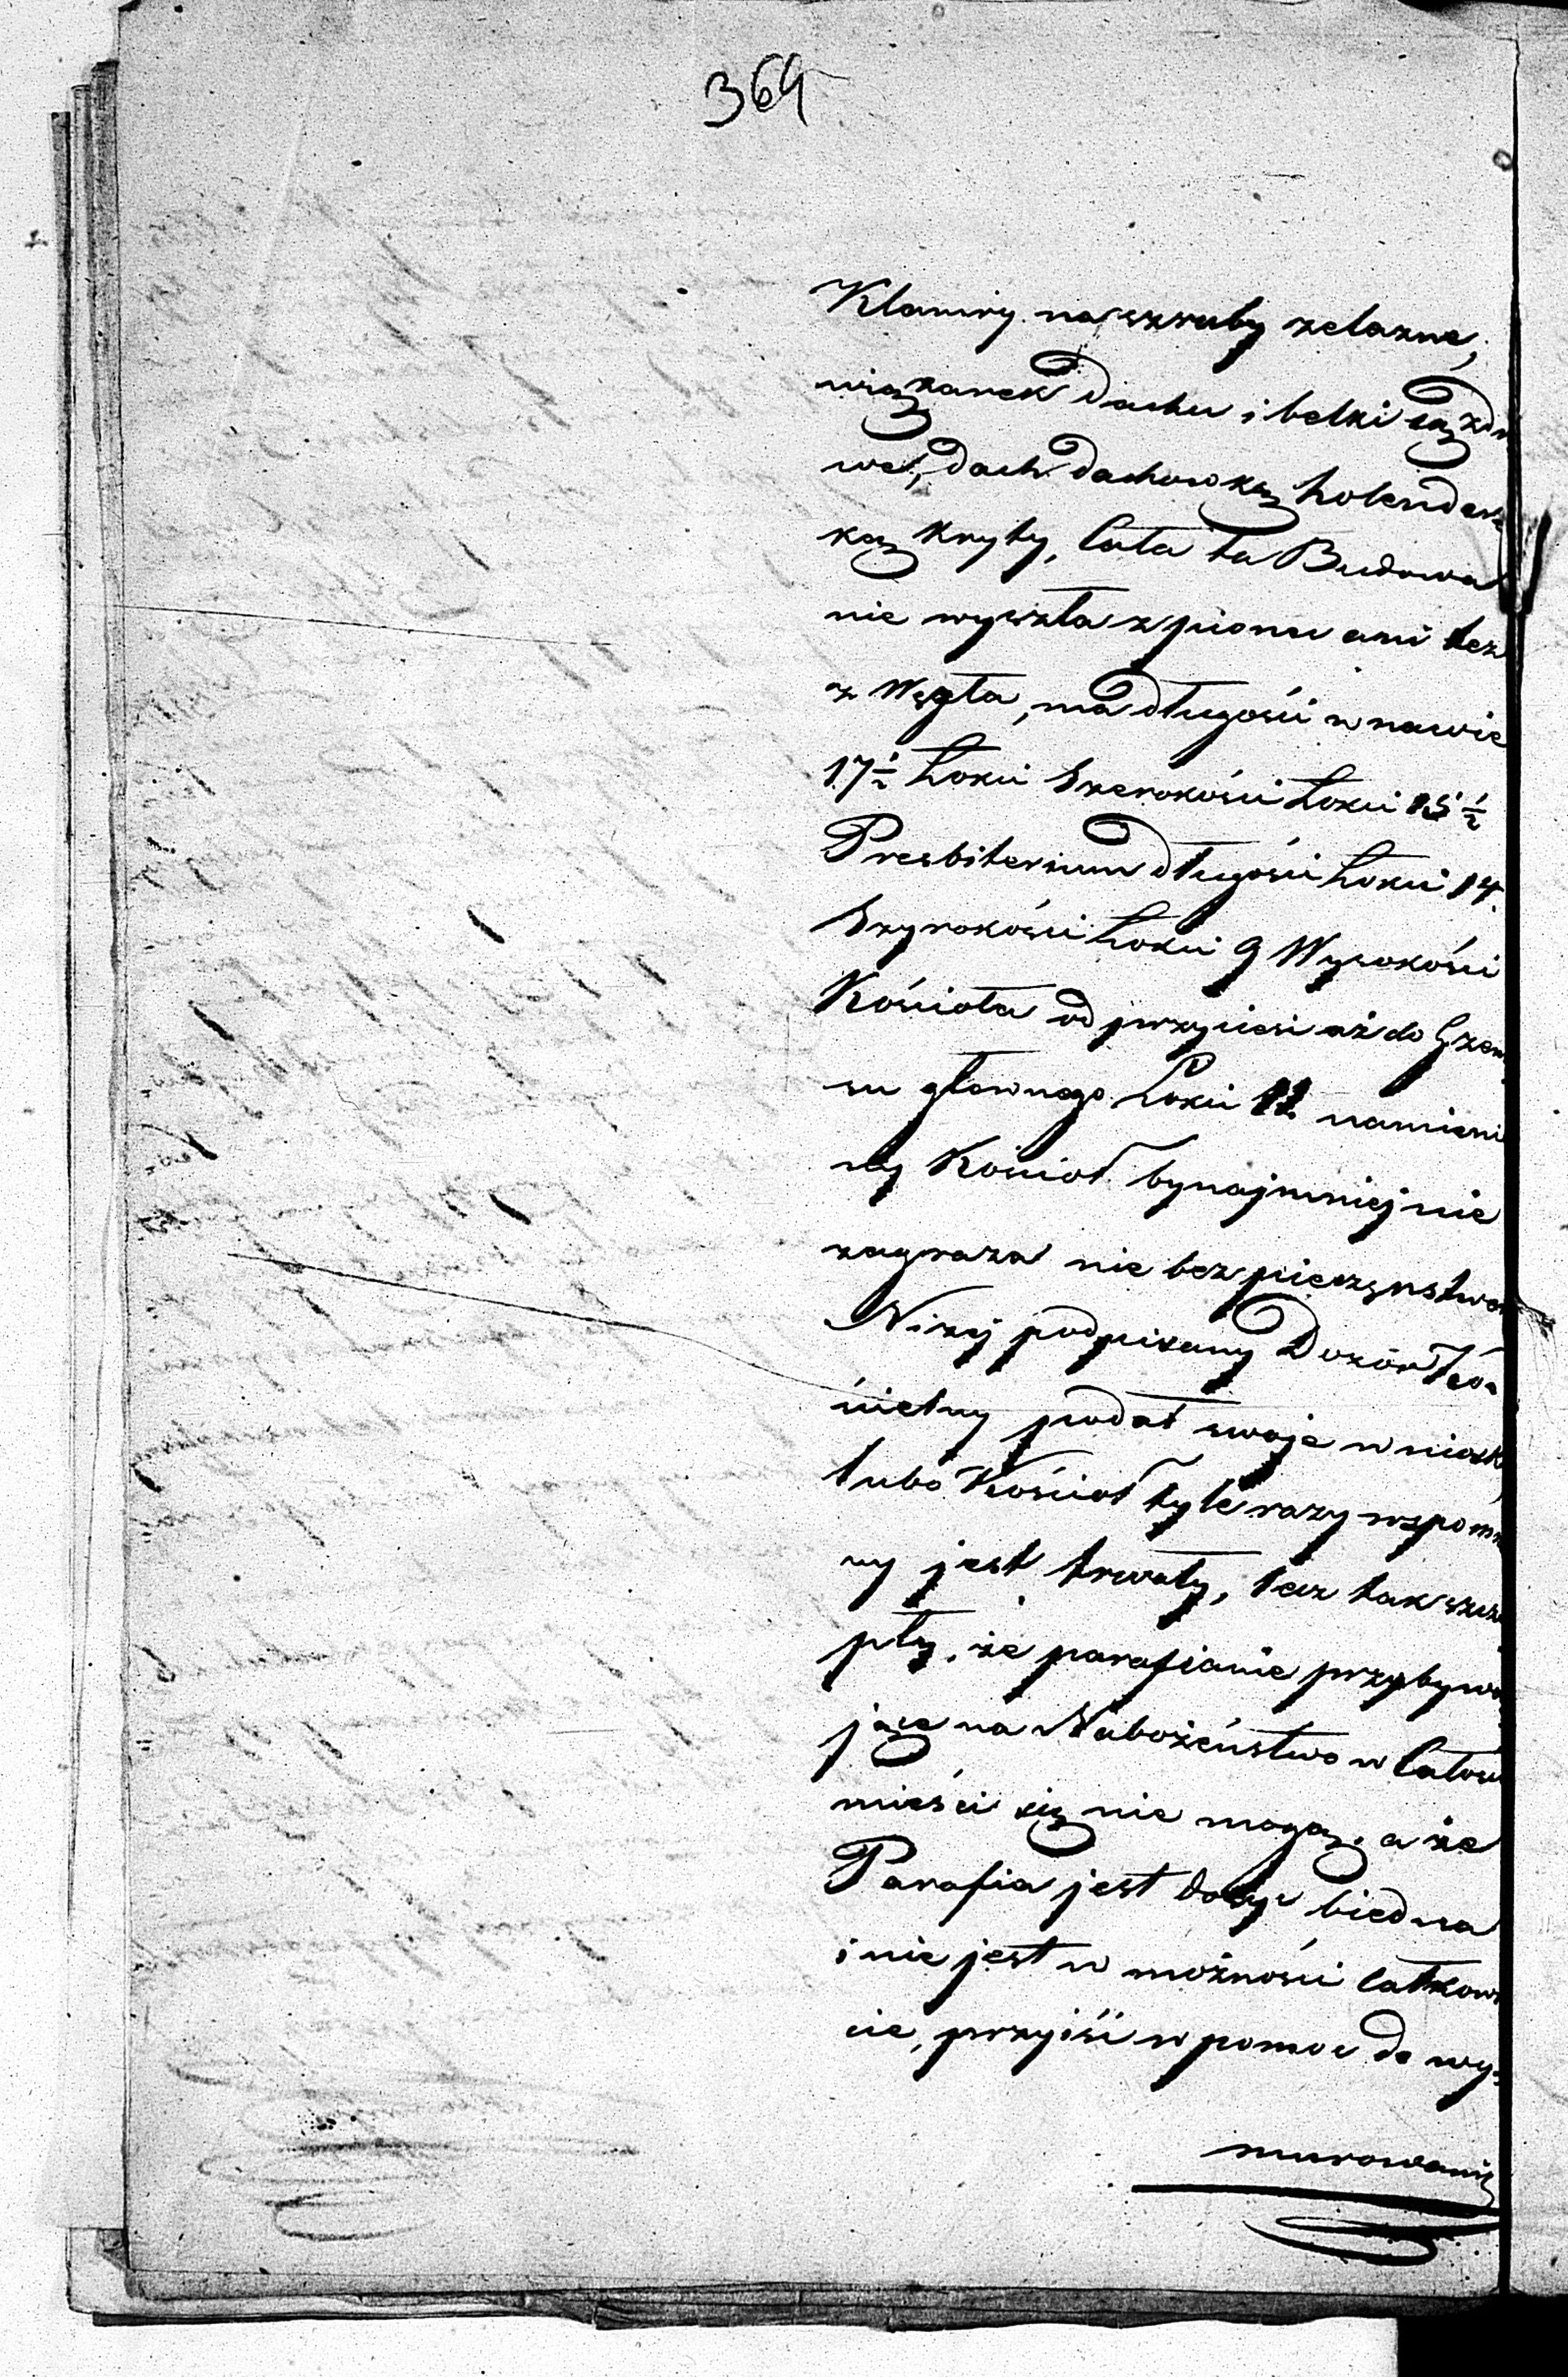 364
Klamry na szruby zelazne,
wiązarek dachu i belki są zdro
we, dach dachowką holenders
ką kryty, Cała ta Budowa
nie wyszła z pionu ani tez
z Węgła, ma długości w nawie
17 1/2 Łokci Szerokości Łokci 15 1/2
Presbiterium długości Łokci 14.
Szyrokości Łokci 9 Wysokości
Kościoła od przyciesi aż do Gzem
su głownego Łokci 11 namieni
ny Kościoł bynajmniej nie
zagraza nie bezpieczęnstwem
Niżej podpisany Dozór Koś
cielny podał swoje wniosk
lubo Kościoł tyle razy wspomn
ny jest trwały, lecz tak szczu
pły, że parafianie przybywa
jące na Nabożeństwo w Całoś
mieści się nie mogą, a że
Parafia jest dosyc biedna
i nie jest w możności całkowi
cie, przyjść w pomoc do wy-
murowania